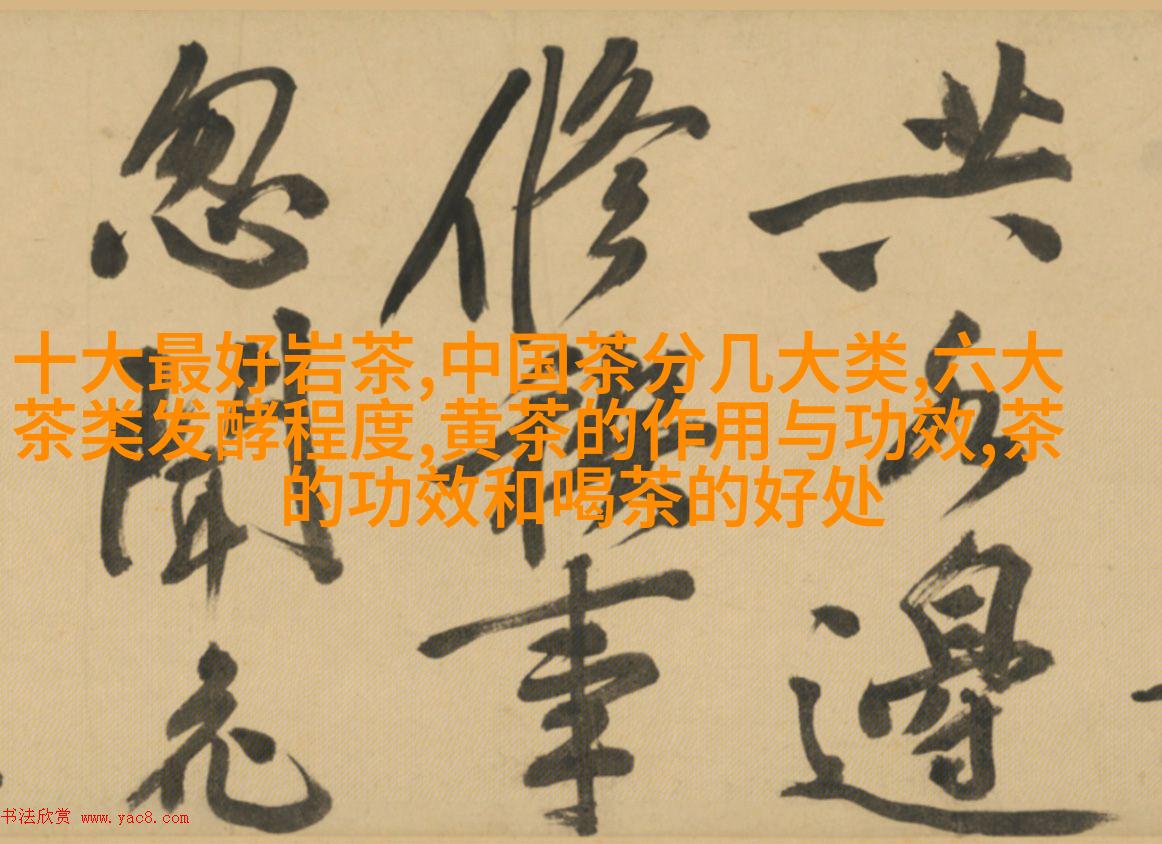 十大最好岩茶,中国茶分几大类,六大
茶类发酵程度,黄茶的作用与功效,茶
的功效和喝茶的好处
共水邊
修禊事
忽聞
书法欣赏 www.yac8.com